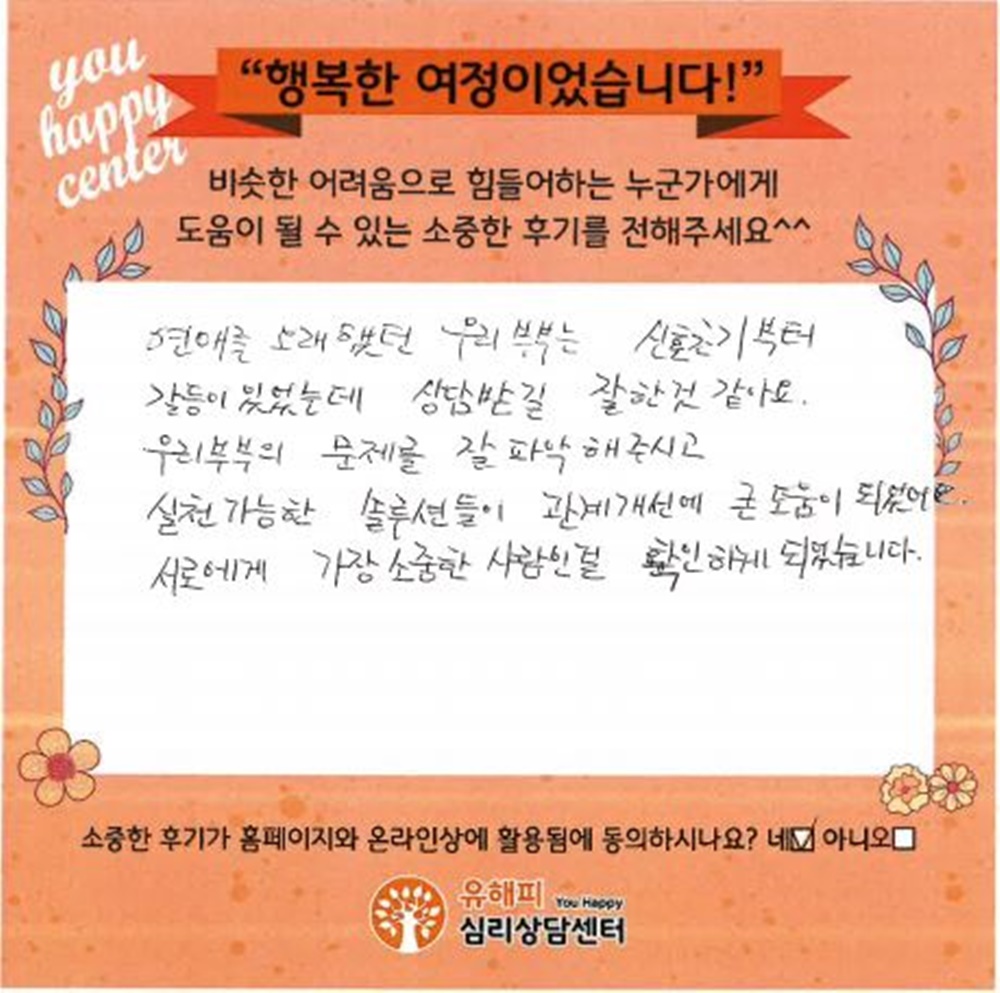 you
happy
center
“행복한 여정이었습니다!”
비슷한 어려움으로 힘들어하는 누군가에게
도움이 될 수 있는 소중한 후기를 전해주세요^^
연애를 오래 했던 우리 부부는 신혼초기부터
갈등이 있었는데 상담받길 잘한것 같아요.
우리부부의 문제를 잘 파악해주시고
실천가능한 솔루션들이 관계개선에 큰 도움이 되었어요.
서로에게 가장 소중한 사람인걸 확인하게 되었습니다.
소중한 후기가 홈페이지와 온라인상에 활용됨에 동의하시나요? 네☑ 아니오☐
유해피 You Happy
심리상담센터